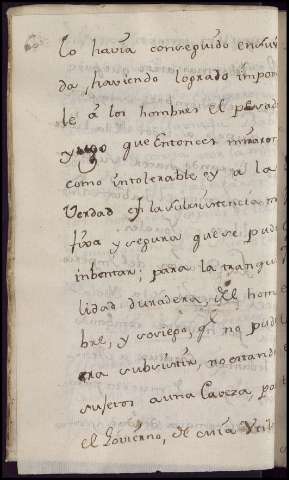 lo havia conseguido en su vi
da, haviendo logrado impon
le á los hombres el pesado
yugo que Entonces miraron
como intolerable y á la
Verdad es la subsistencia m
fixa y segura que se pudo
inbentar; para la tranqui
lidad duradera, del hom
bre, y sosiego, qe. no pudi
era subsistir, no estando
sujetos a una Caveza, po
el Govierno, de cuia